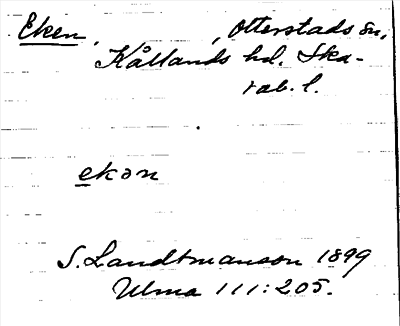 Eken, , Otterstads sn,
Kållands hd. Ska-
rab. l.
ekən
S. Landtmanson 1899
Ulma 111:205.